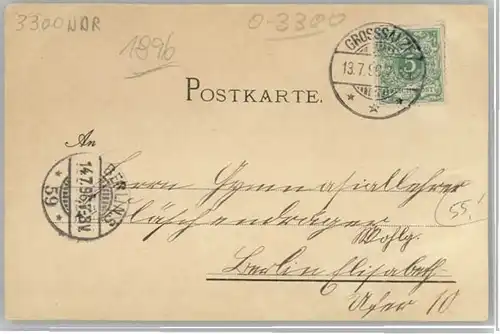 3300 NDR
0-3300
1896
GROSSSALZE
13.7.96
5
POSTKARTE.
An
BERLIN, S
14.7.96
59
Herrn Gymnasiallehrer
Fläschendräger
Wohlg.
55.
Berlin Elisabeth
Ufer 10